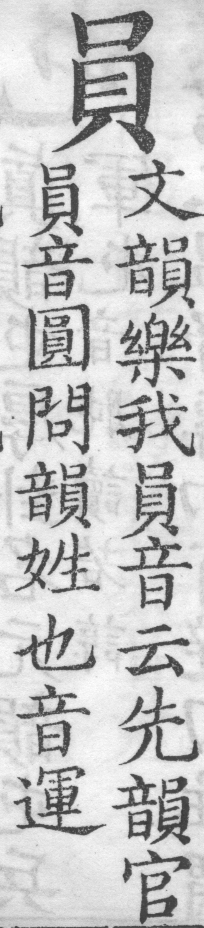 員
文韻樂我員音云先韻官
員音圓問韻姓也音運